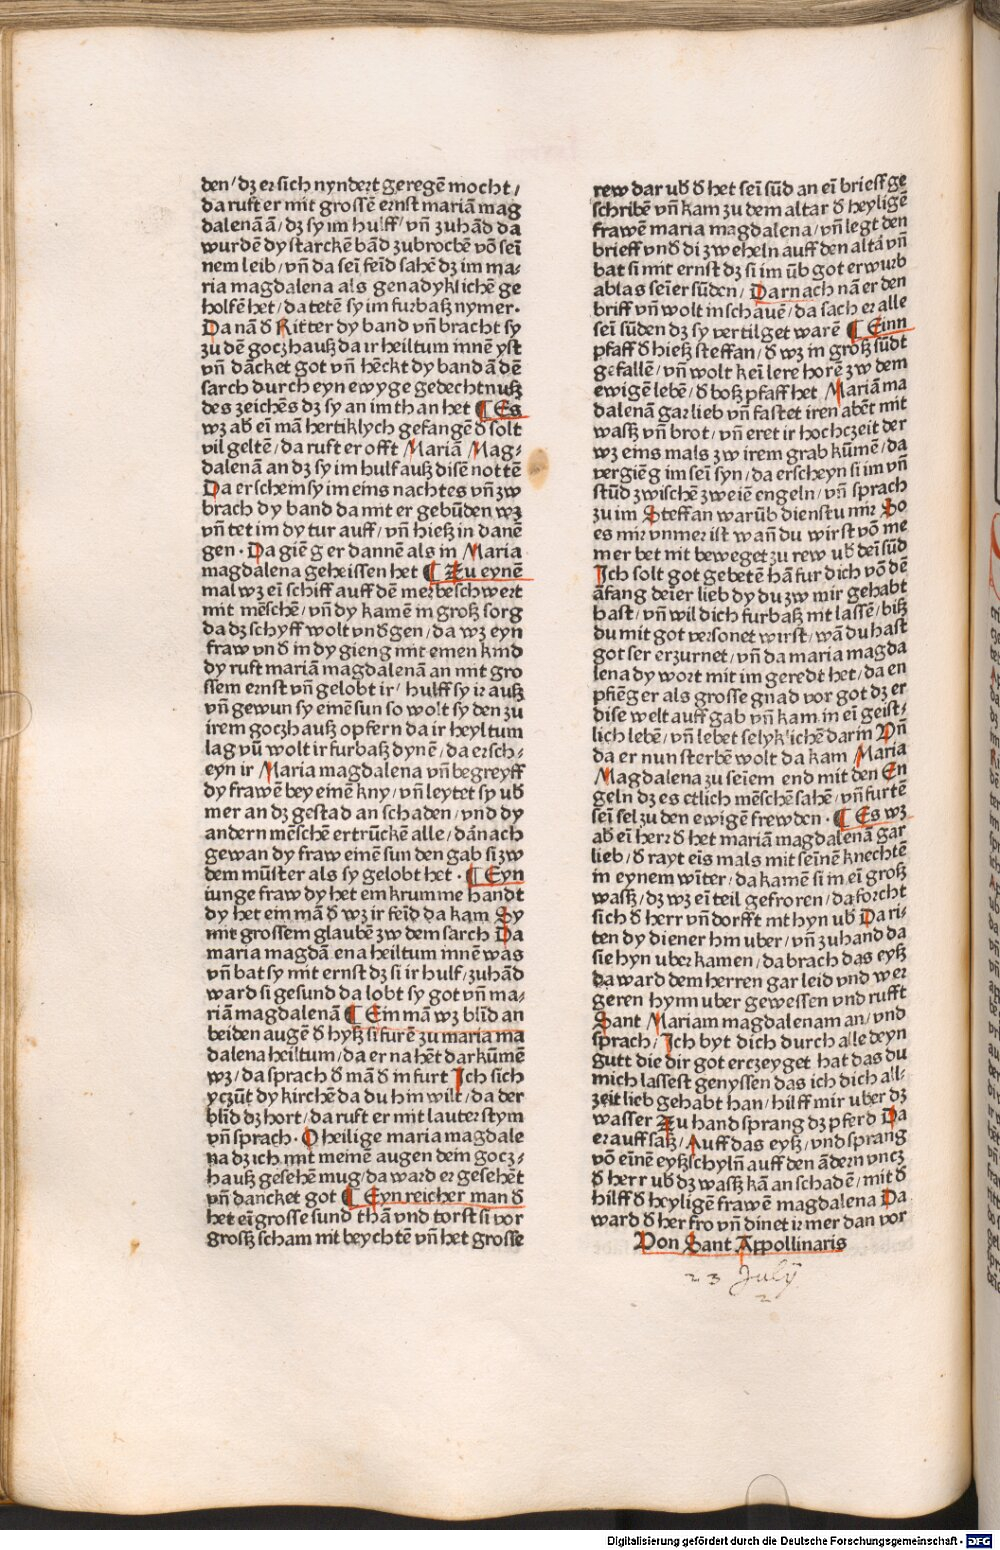 den/ dz er sich nyndert geregē mocht/
da ruft er mit grossē ernst mariā mag
dalenā ā/ dz sy im hulff/ vn̄ zuhād da
wurdē dy starckē bād zubrochē vō sei
nem leib/ vn̄ da sei feīd sahē dz im ma⸗
ria magdalena als genadyklichē ge
holfē het/ da tetē sy im furbaß nymer.
Da nā đ Ritter dy band vn̄ bracht sy
zu dē goczhauß da ir heiltum innē yst
vn̄ dācket got vn̄ hēckt dy band ā dē
sarch durch eyn ewyge gedechtnuß
des zeichēs dz sy an im than het ¶ Es
wz ab eī mā hertiklych gefangē đ solt
vil geltē/ da ruft er offt Mariā Mag⸗
dalenā an dz sy im hulf auß disē nottē
Da erschein sy im eins nachtes vn̄ zw
brach dy band da mit er gebūden wz
vn̄ tet im dy tur auff/ vn̄ hieß in danē
gen. Da giēg er dannē als in Maria
magdalena geheissen het ¶ Zu eynē
mal wz ei schiff auff dē mer beschwert
mit mēschē/ vn̄ dy kamē in groß sorg
da dz schyff wolt vndgen/ da wz eyn
fraw vnđ in dy gieng mit einen kind
dy ruft mariā magdalenā an mit gro
ssem ernst vn̄ gelobt ir/ hulff sy ir auß
vn̄ gewun sy einē sun so wolt sy den zu
irem goczhauß opfern da ir heyltum
lag vn̄ wolt ir furbaß dynē/ da ersch⸗
eyn ir Maria magdalena vn̄ begreyff
dy frawē bey einē kny/ vn̄ leytet sy ub̄
mer an dz gestad an schaden/ vnd dy
andern mēschē ertrūckē alle/ dānach
gewan dy fraw einē sun den gab si zw
dem mūster als sy gelobt het. ¶ Eyn
iunge fraw dy het ein krumme handt
dy het ein mā đ wz ir feīd da kam Sy
mit grossem glaubē zw dem sarch Da
maria magdā ena heiltum innē was
vn̄ bat sy mit ernst dz si ir hulf/ zuhād
ward si gesund da lobt sy got vn̄ ma⸗
riā magdalenā ¶ Ein mā wz blīd an
beiden augē đ hyß si furē zu maria ma
dalena heiltum/ da er nahēt dar kūmē
wz/ da sprach đ mā đ in furt Ich sich
yczūt dy kirchē da du hin wilt/ da der
blīd dz hort/ da ruft er mit lauter stym
vn̄ sprach. O heilige maria magdale
na dz ich mit meinē augen dein gocz⸗
hauß gesehē mug/ da ward er gesehēt
vn̄ dancket got ¶ Eyn reicher man đ
het eī grosse sund thā vnd torst si vor
groß scham nit beychtē vn̄ het grosse
rew dar ub̄ đ het sei sūd an eī brieff ge
schribē vn̄ kam zu dem altar đ heyligē
frawē maria magdalena/ vn̄ legt den
brieff vnđ di zweheln auff den altā vn̄
bat si mit ernst dz si im ūb got erwurb
ablas seīer sūden/ Darnach nā er den
briff vn̄ wolt in schauē/ da sach er alle
sei sūden dz sy vertilget warē ¶ Einn
pfaff đ hieß steffan/ đ wz in groß sūdt
gefallē/ vn̄ wolt kei lere horē zw dem
ewigē lebē/ đ boß pfaff het Mariā ma
dalenā gar lieb vn̄ fastet iren abēt mit
wasß vn̄ brot/ vn̄ eret ir hochczeit der
wz eins mals zw irem grab kūmē/ da
vergiēg im sei syn/ da erscheyn si im vn̄
stūd zwischē zweiē engeln/ vn̄ sprach
zu im Steffan warūb dienstu mir So
es mir vnmer ist wan̄ du wirst vō me
mer bet mit beweget zu rew ub̄ dei sūd
Ich solt got gebetē hā fur dich vō dē
āfang deīer lieb dy du zw mir gehabt
hast/ vn̄ wil dich furbaß nit lassē/ biß
du mit got versonet wirst/ wā du hast
got ser erzurnet/ vn̄ da maria magda
lena dy wort mit im geredt het/ da en
pfiēg er als grosse gnad vor got dz er
dise welt auff gab vn̄ kam in eī geist⸗
lich lebē/ vn̄ lebet selyklichē darin Vn̄
da er nun sterbē wolt da kam Maria
Magdalena zu seīem end mit den En
geln dz es etlich mēschē sahē/ vn̄ furtē
sei sel zu den ewigē frewden. ¶ Es wz
ab eī herr đ het mariā magdalenā gar
lieb/ đ rayt eis mals mit seinē knechtē
in eynem wīter/ da kamē si in eī groß
wasß/ dz wz eī teil gefroren/ da forcht
sich đ herr vn̄ dorfft nit hyn ub̄ Da ri⸗
ten dy diener hin uber/ vn̄ zuhand da
sie hyn uber kamen/ da brach das eyß
da ward dem herren gar leid vnd wer
geren hynn uber gewessen vnd rufft
Sant Mariam magdalenam an/ vnd
sprach/ Ich byt dich durch alle deyn
gutt die dir got erczeyget hat das du
mich lassest genyssen das ich dich all⸗
zeit lieb gehabt han/ hilff mir uber dz
wasser Zu hand sprang dz pferd Da
er auff saß/ Auff das eyß/ vnd sprang
vō einē eyßschyln̄ auff den ādern vncz
đ herr ub̄ dz wasß kā an schadē/ mit đ
hilff đ heyligē frawē magdalena Da
ward đ her fro vn̄ dinet ir mer dan vor
Von Sant Appollinaris
23 July
2
Digitalisierung gefördert durch die Deutsche Forschungsgemeinschaft - DFG